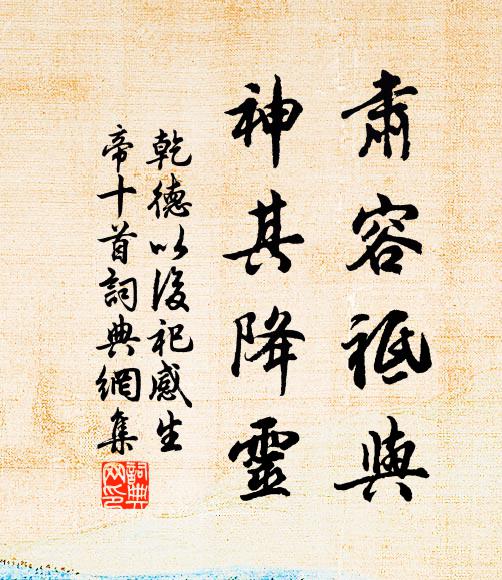 肅容祗與
神其降靈
乾德以後祀感生
帝十首詞典網集
詞典網印